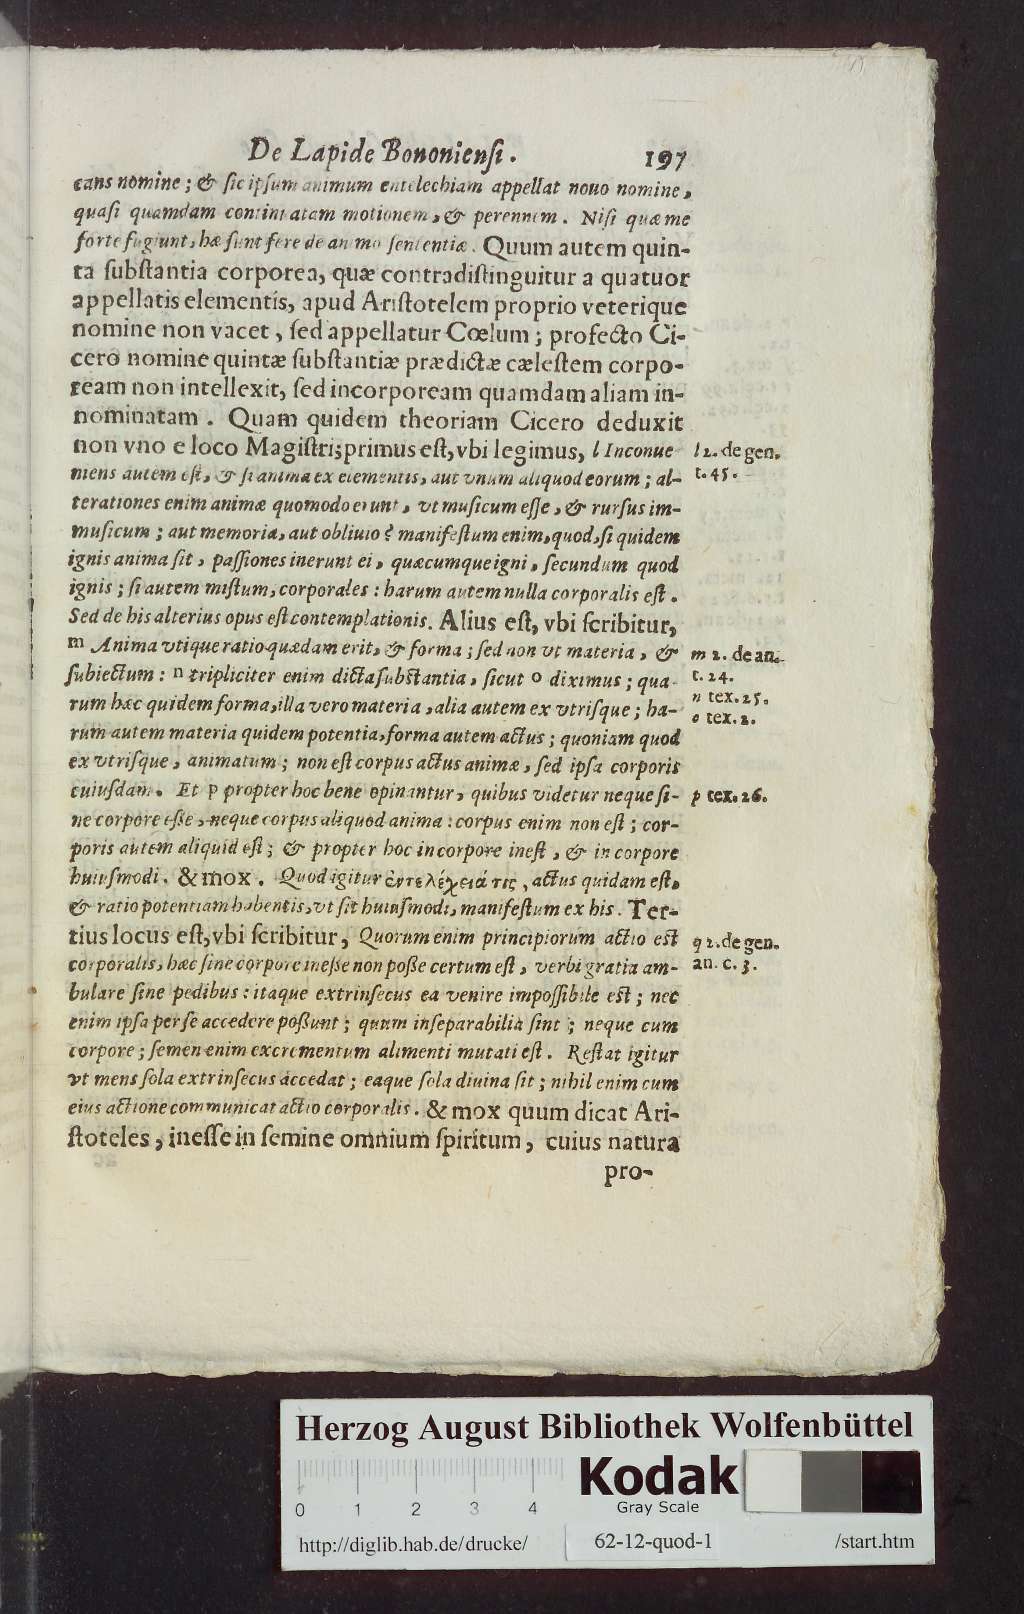 De Lapide Bononiensi. 197
cans nomine; & sic ipsum animum entelechiam appellat nouo nomine,
quasi quamdam continuatam motionem, & perennem. Nisi quæ me
forte fugiunt, hæ sunt fere de animo sententiæ. Quum autem quin-
ta substantia corporea, quæ contradistinguitur a quatuor
appellatis elementis, apud Aristotelem proprio veterique
nomine non vacet, sed appellatur Cœlum; profecto Ci-
cero nomine quintæ substantiæ prædictæ cælestem corpo-
ream non intellexit, sed incorpoream quamdam aliam in-
nominatam. Quam quidem theoriam Cicero deduxit
non vno e loco Magistri; primus est, vbi legimus, l Inconue
l 2. de gen.
niens autem est, & si anima ex elementis, aut vnum aliquod eorum; al-
t. 45.
terationes enim animæ quomodo erunt, vt musicum esse, & rursus im-
musicum; aut memoria, aut obliuio? manifestum enim, quod, si quidem
ignis anima sit, passiones inerunt ei, quæcumque igni, secundum quod
ignis; si autem mistum, corporales: harum autem nulla corporalis est.
Sed de his alterius opus est contemplationis. Alius est, vbi scribitur,
m Anima vtique ratio quædam erit, & forma; sed non vt materia, &
m 2. de an.
subiectum: n tripliciter enim dicta substantia, sicut o diximus; qua-
t. 24.
n tex. 25.
rum hæc quidem forma, illa vero materia, alia autem ex vtrisque; ha-
o tex. 2.
rum autem materia quidem potentia, forma autem actus; quoniam quod
ex vtrisque, animatum; non est corpus actus animæ, sed ipsa corporis
cuiusdam. Et p propter hoc bene opinantur, quibus videtur neque si-
p tex. 26.
ne corpore esse, neque corpus aliquod anima: corpus enim non est; cor-
poris autem aliquid est; & propter hoc in corpore inest, & in corpore
huiusmodi. & mox. Quod igitur ἐντελέχειά τις, actus quidam est,
& ratio potentiam habentis, vt sit huiusmodi, manifestum ex his. Ter-
tius locus est, vbi scribitur, Quorum enim principiorum actio est
q 2. de gen.
corporalis, hæc sine corpore inesse non posse certum est, verbi gratia am-
an. c. 3.
bulare sine pedibus: itaque extrinsecus ea venire impossibile est; nec
enim ipsa per se accedere possunt; quum inseparabilia sint; neque cum
corpore; semen enim excrementum alimenti mutati est. Restat igitur
vt mens sola extrinsecus accedat; eaque sola diuina sit; nihil enim cum
eius actione communicat actio corporalis. & mox quum dicat Ari-
stoteles, inesse in semine omnium spiritum, cuius natura
pro-
Herzog August Bibliothek Wolfenbüttel
0 1 2 3 4
Kodak
Gray Scale
http://diglib.hab.de/drucke/ 62-12-quod-1 /start.htm